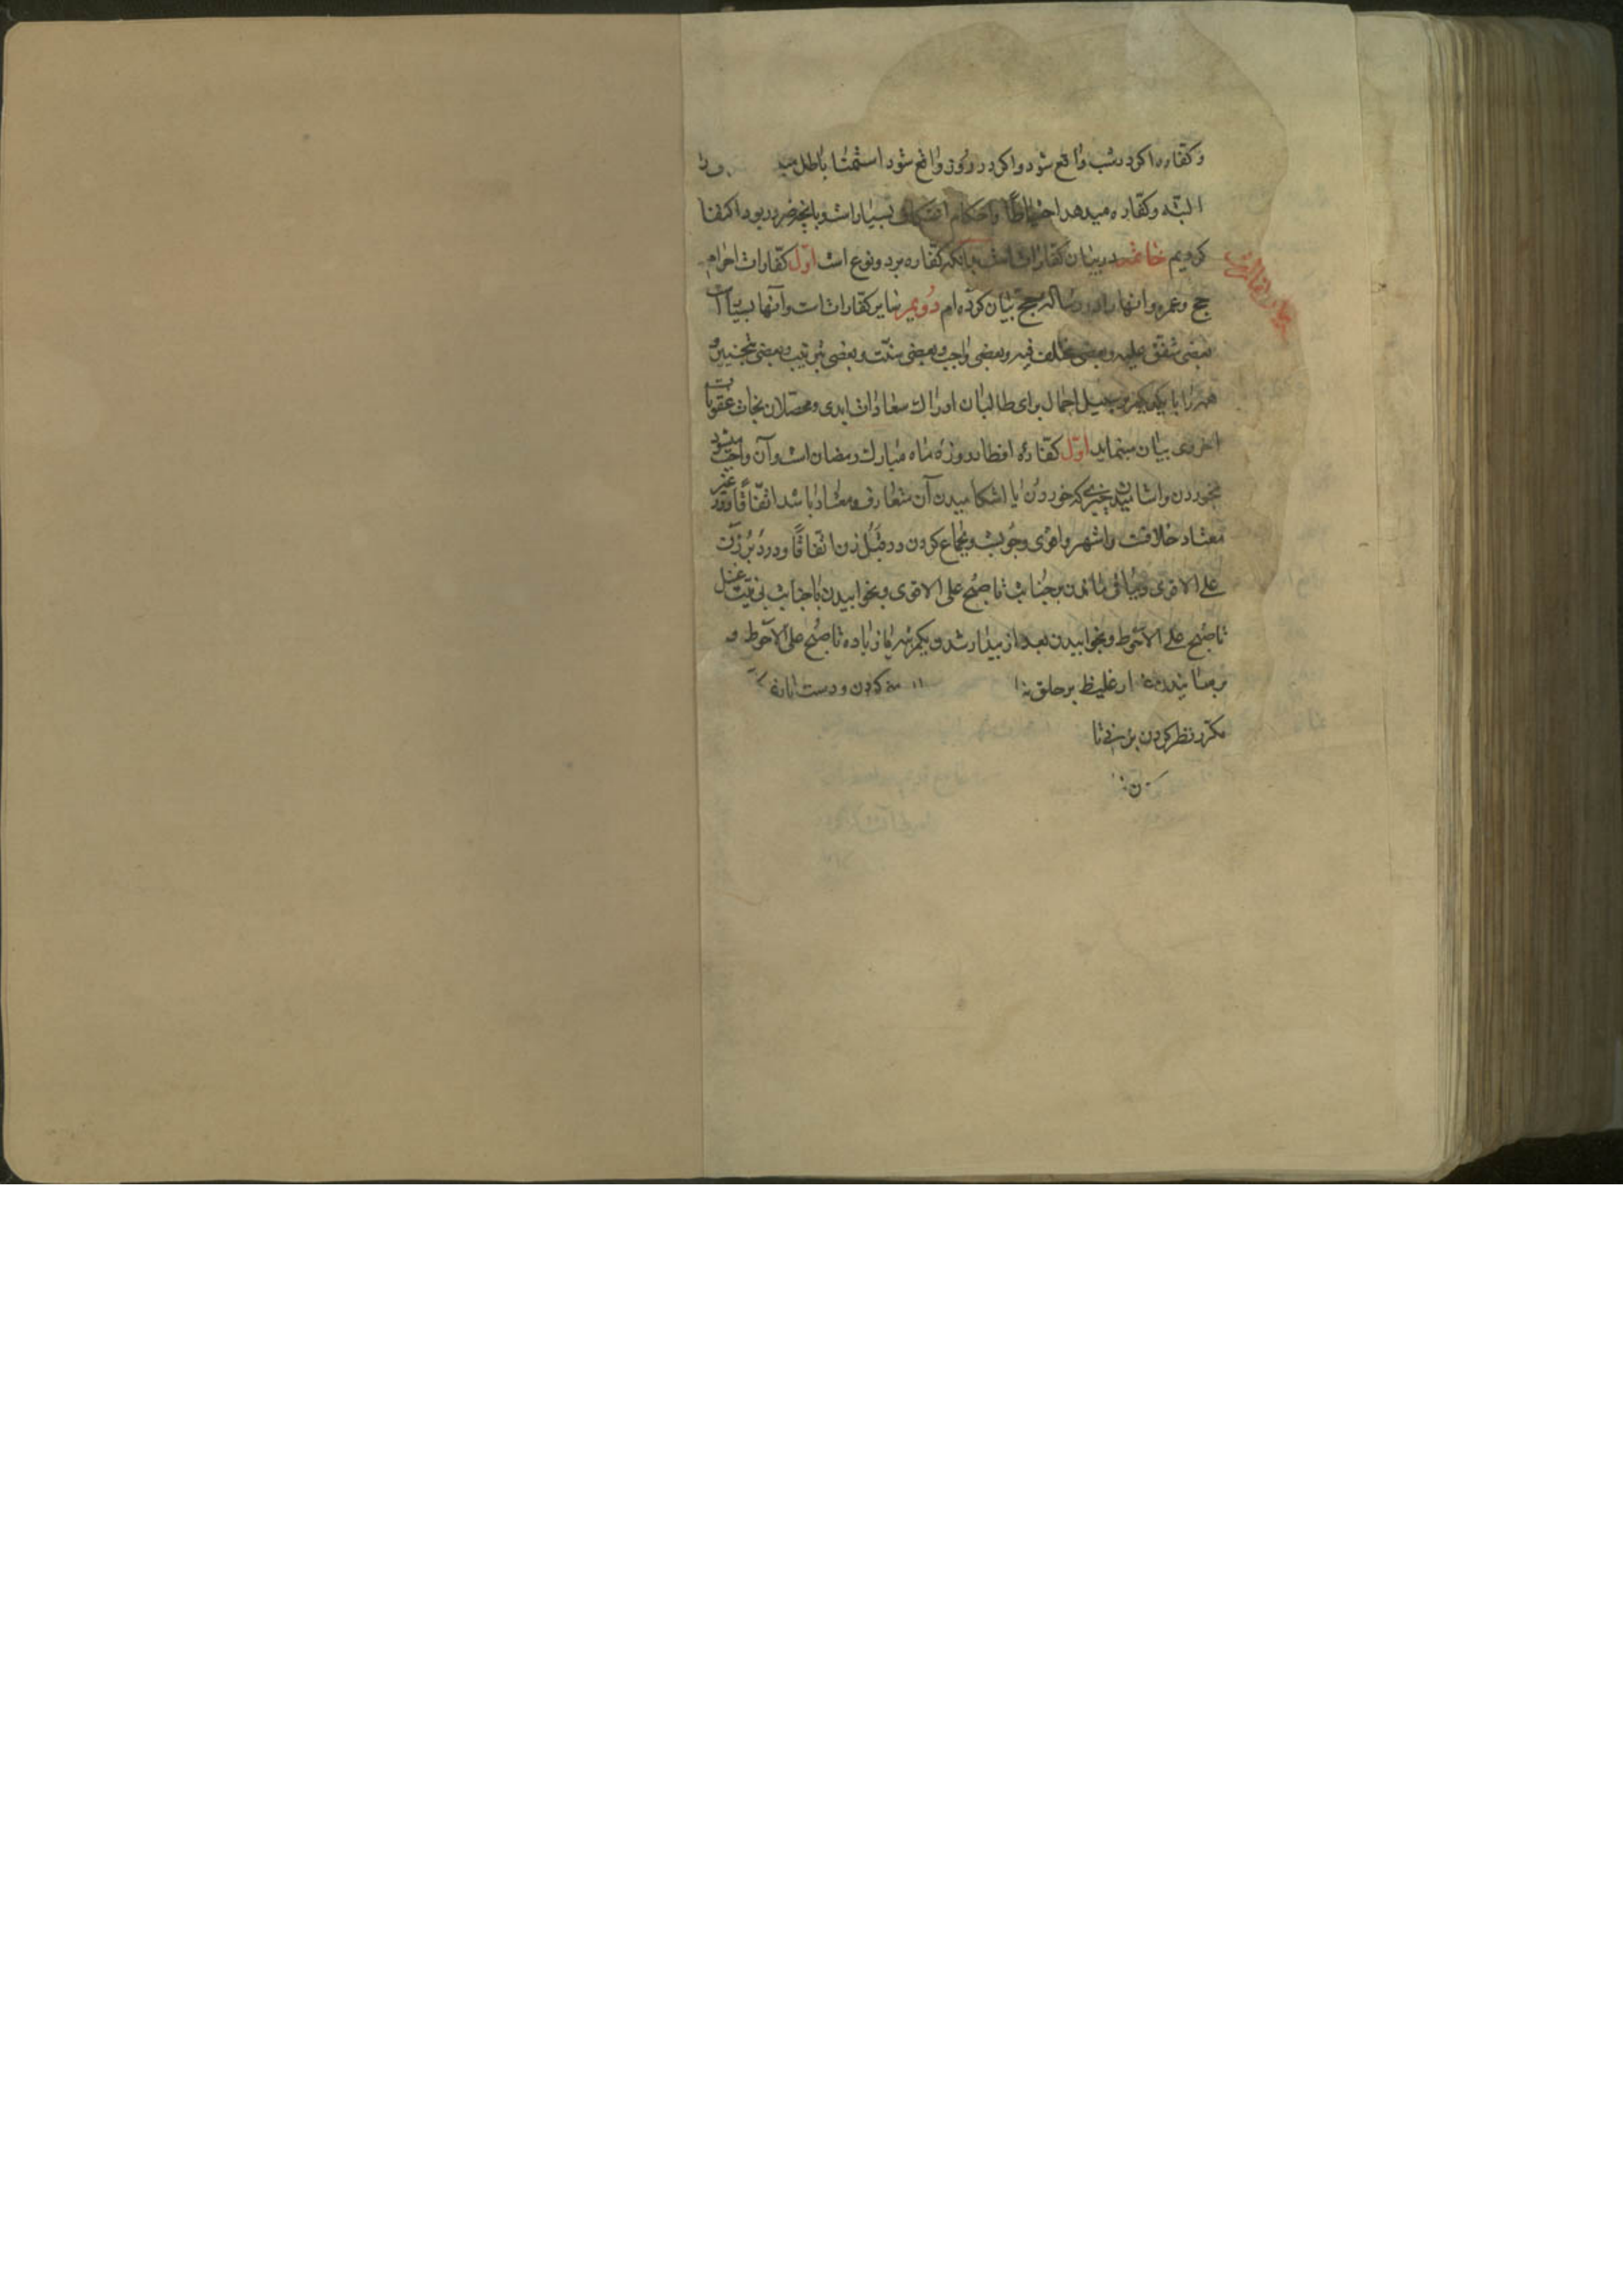 و کفاره اکر در شب واقع شود و اکر در روز واقع شود استمنا باطل
البته و کفاره میدهد احتیاطا و احکام اعتکاف بسیار است و بانچه ضرور بود اکتفا
کردیم خاتمه در بیان کفارات است بدانکه کفاره بر دو نوع است اول کفارات احرام
حج و عمره و انها را در رساله حج بیان کرده ام دویم سایر کفارات است و آنها بسیار است
بعضی متفق علیه و بعضی مختلف فیه و بعضی واجب و بعضی سنت و بعضی بترتیب و بعضی بتخییر و
همه را با یکدیکر بر سبیل اجمال برای طالبان ادراك سعادات ابدی و محصلان نجات عقوبات
اخروی بیان مینماید اول کفاره افطار روزه ماه مبارك رمضان است و آن واجب میشود
بخوردن و اشامیدن چیزی که خوردن یا اشامیدن آن متعارف و معتاد باشد اتفاقا و در غیر
معتاد خلافست و اشهر و اقوی وجوبست و بجماع کردن در قبل زن اتفاقا و در دبر زن
علی الاقوی و بباقی ماندن بر جنابت تا صبح علی الاقوی و بخوابیدن با جنابت بی نیت غسل
تا صبح علی الاحوط و بخوابیدن بعد از بیدار شدن یکمرتبه یا زیاده تا صبح علی الاحوط و
برسانیدن غلیظ بر حلق کردن و دست
مکرر نظر کردن بر